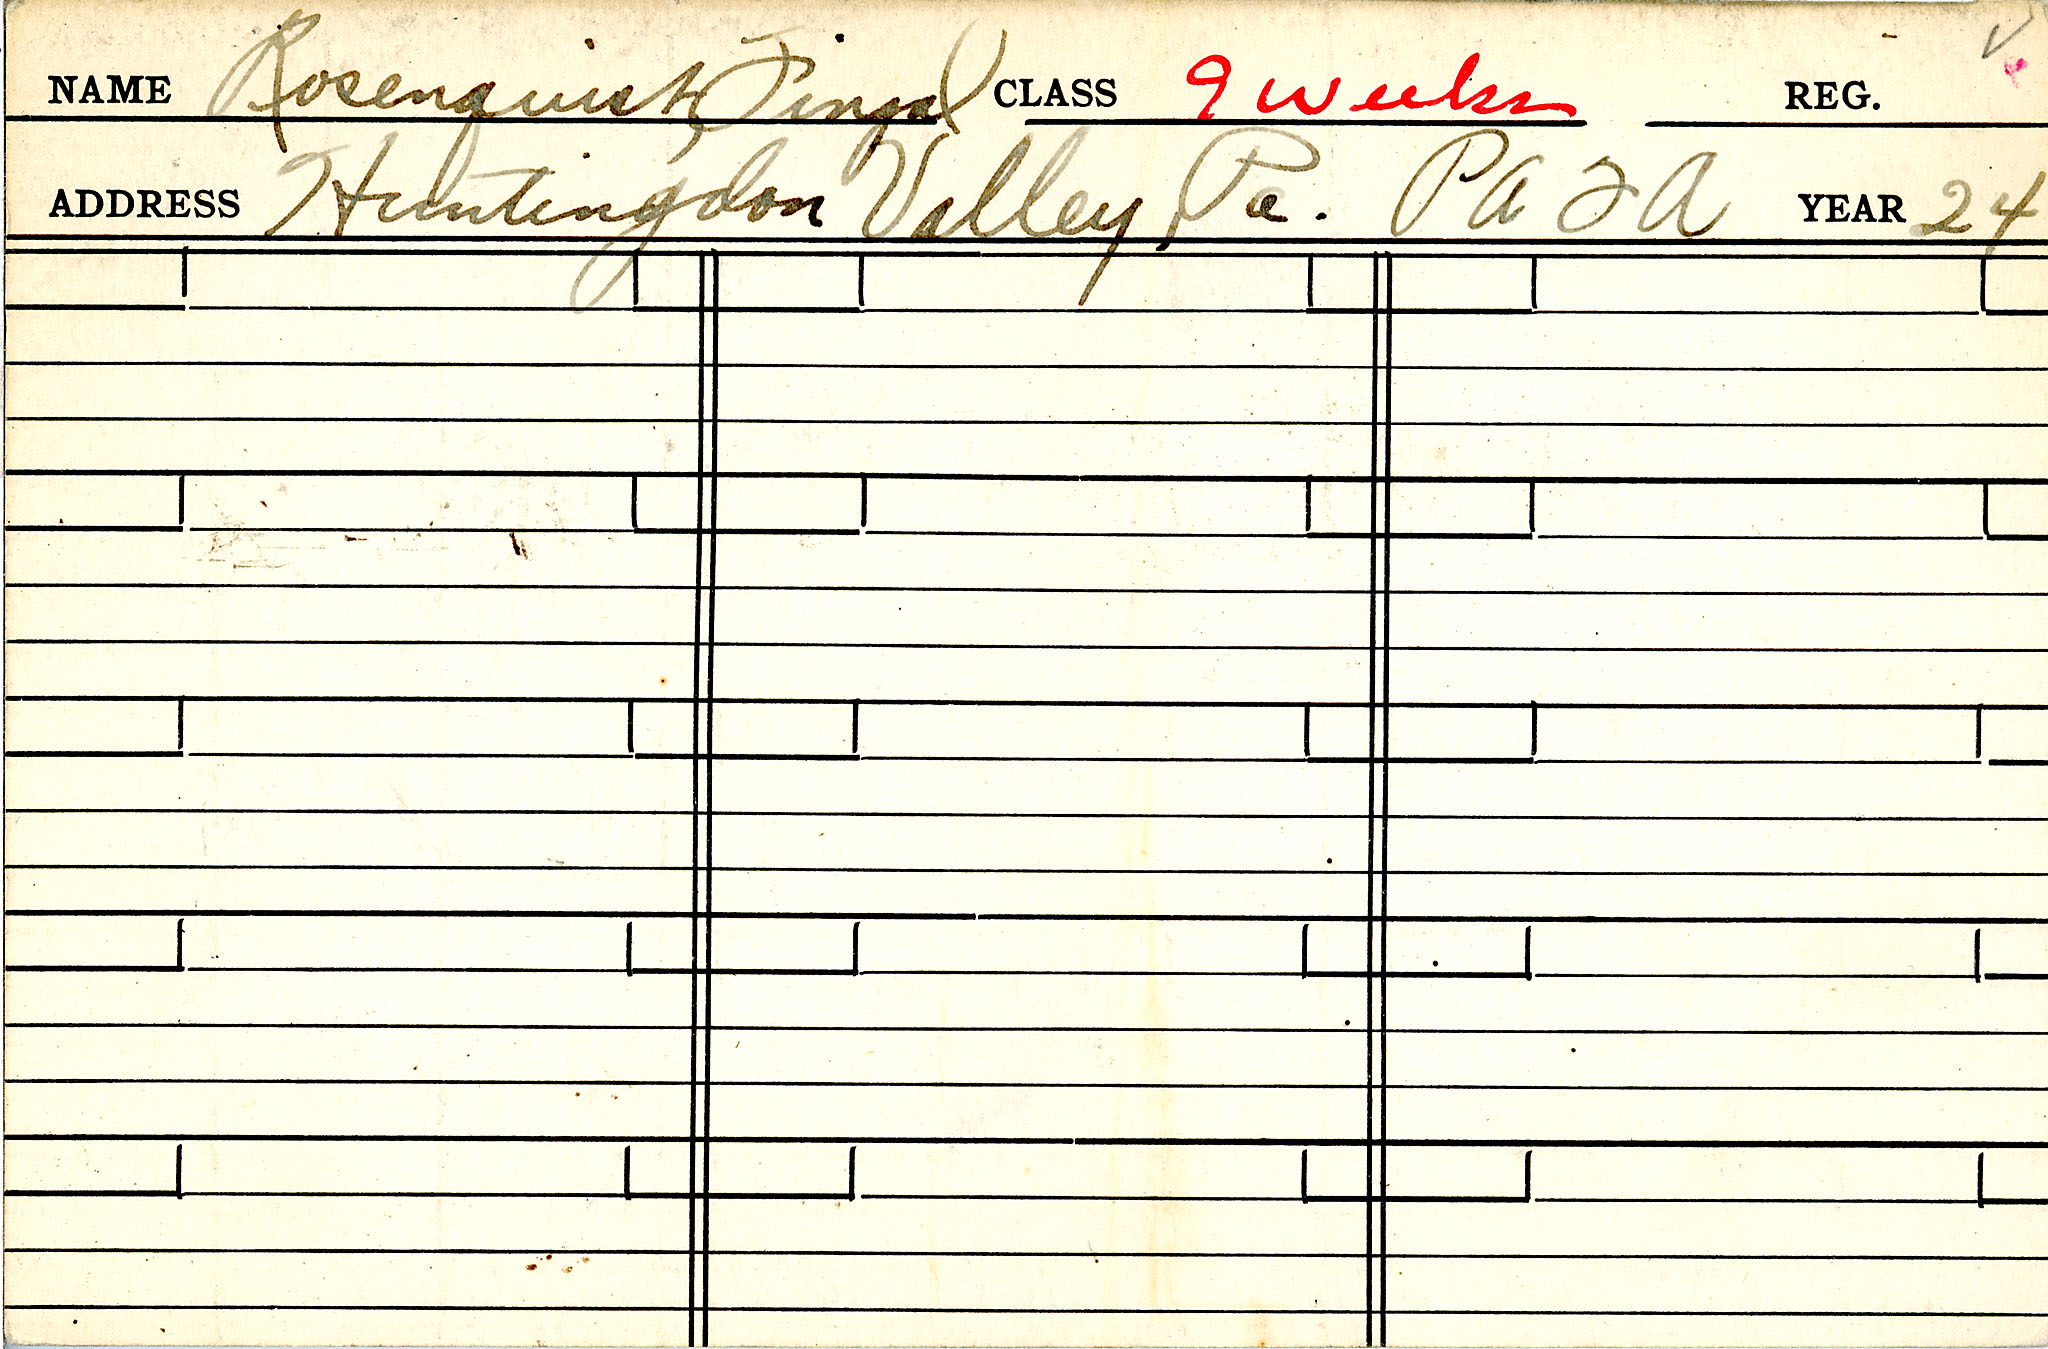 NAME Rosenquist, Fingal CLASS 9 weeks REG.
ADDRESS Huntingdon Valley, Pa. PAFA YEAR 24